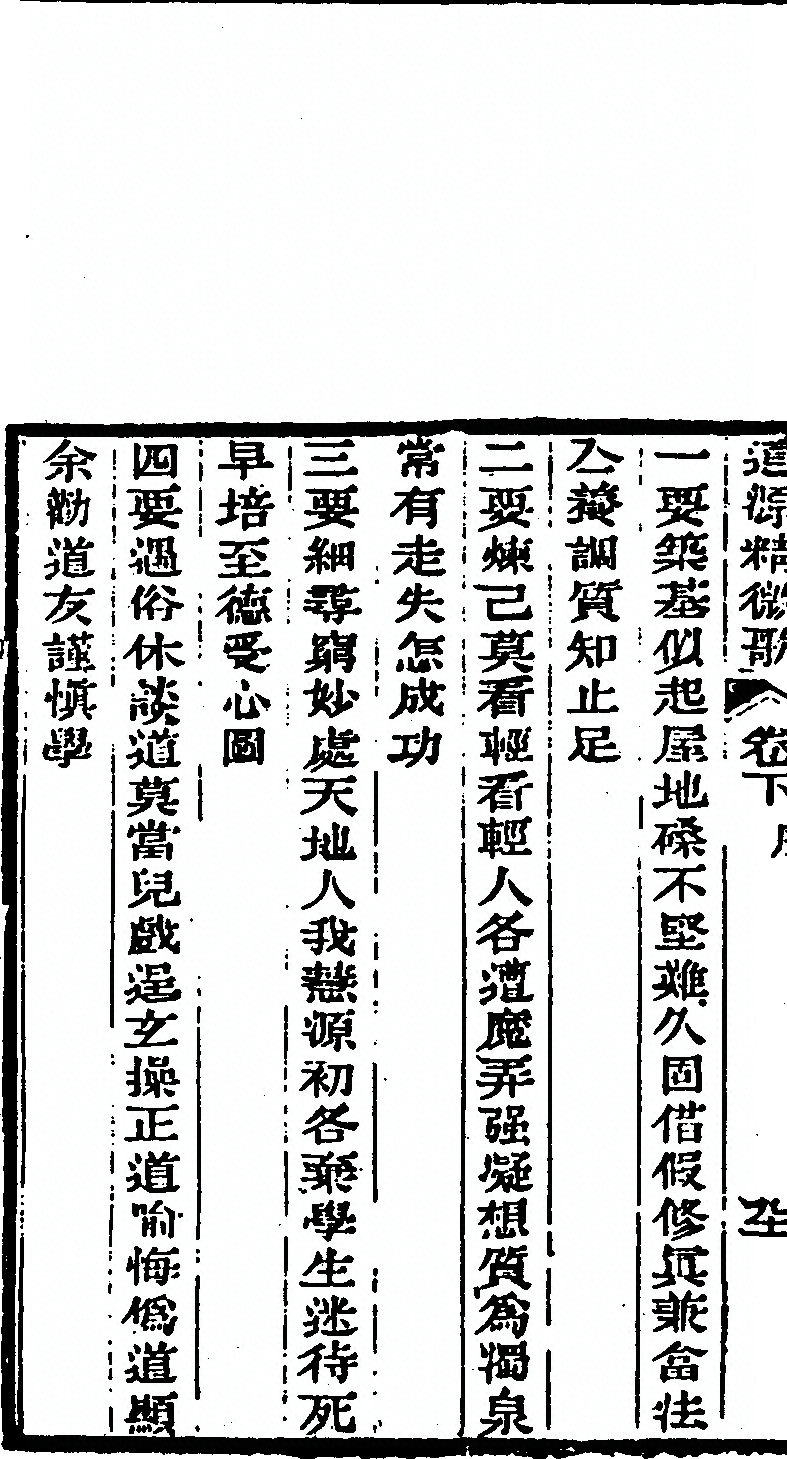 道源精微歌 卷下 序
一要築基似起屋地磉不堅難久固借假修眞兼畣法
公養調質知止足
二要煉己莫看輕看輕人各遭魔弄强凝想質為獨泉
常有走失怎成功
三要細尋窮妙處天地人我慧源初各棄學生迷待死
早培至德受心圖
四要遇俗休談道莫當兒戲逞玄操正道喻悔僞道顯
余勸道友謹慎學